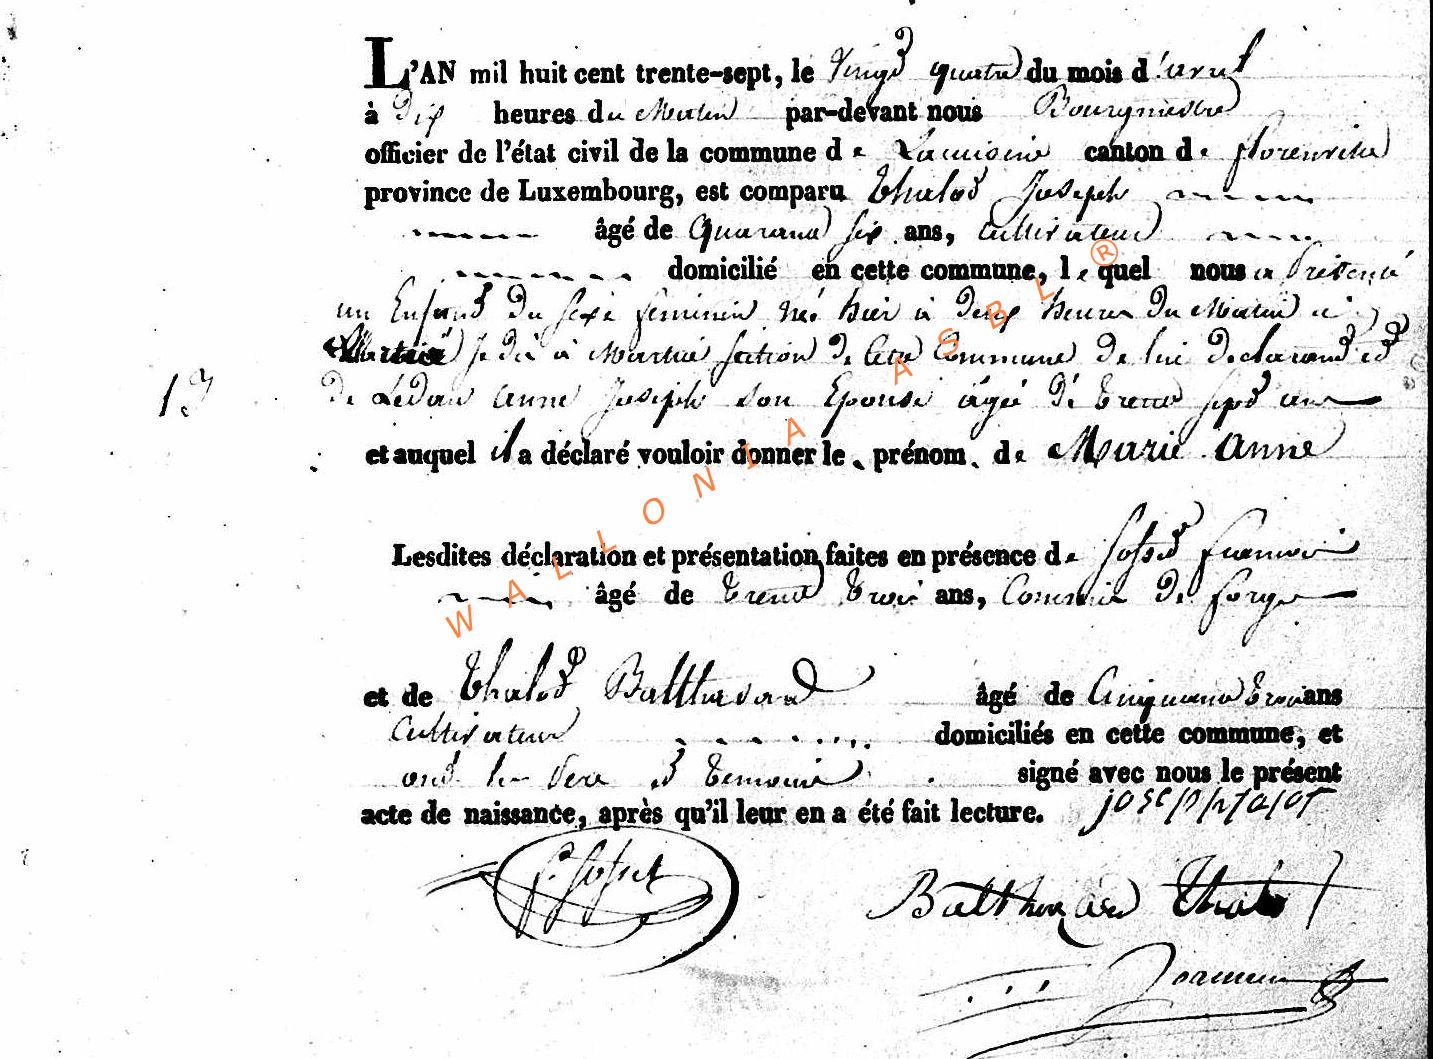 L'AN mil huit cent trente-sept, le vingt quatre du mois d'avril
à dix heures du Matin par-devant nous Bourgmestre
officier de l'état civil de la commune de Lacuisine canton de florenville
province de Luxembourg, est comparu thalot Joseph
âgé de Quarante six ans, Cultivateur
domicilié en cette commune, le quel nous a Présenté
un Enfant du sexe feminin né hier à deux heures du Matin à
Je dis à Martué section de Cette Commune de lui declarant et
13 de Ledan anne Joseph son Epouse âgée de trente sept ans
et auquel il a déclaré vouloir donner le prénom de Marie Anne
Lesdites déclaration et présentation faites en présence de
âgé de trente trois ans, Commis de forge
et de thalot Balthazard âgé de Cinquante trois ans
Cultivateur domiciliés en cette commune, et
ont les Pere et temoins signé avec nous le présent
acte de naissance, après qu'il leur en a été fait lecture.
Balthazard thalot
WALLONIA ASBL ®